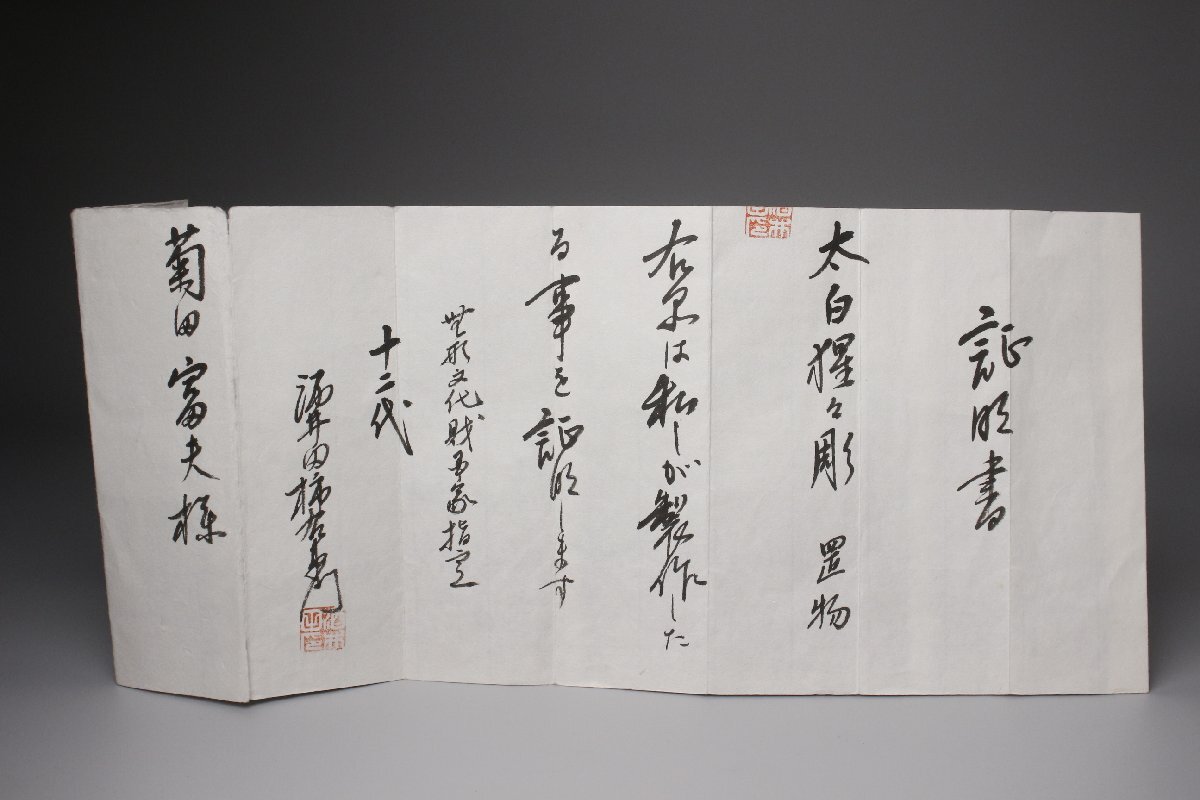 証明書
太白猩々彫 置物
右品は私しが製作した
る事を証明します
無形文化財〓〓指定
十二代
酒井田柿右衛門
菊田富夫様